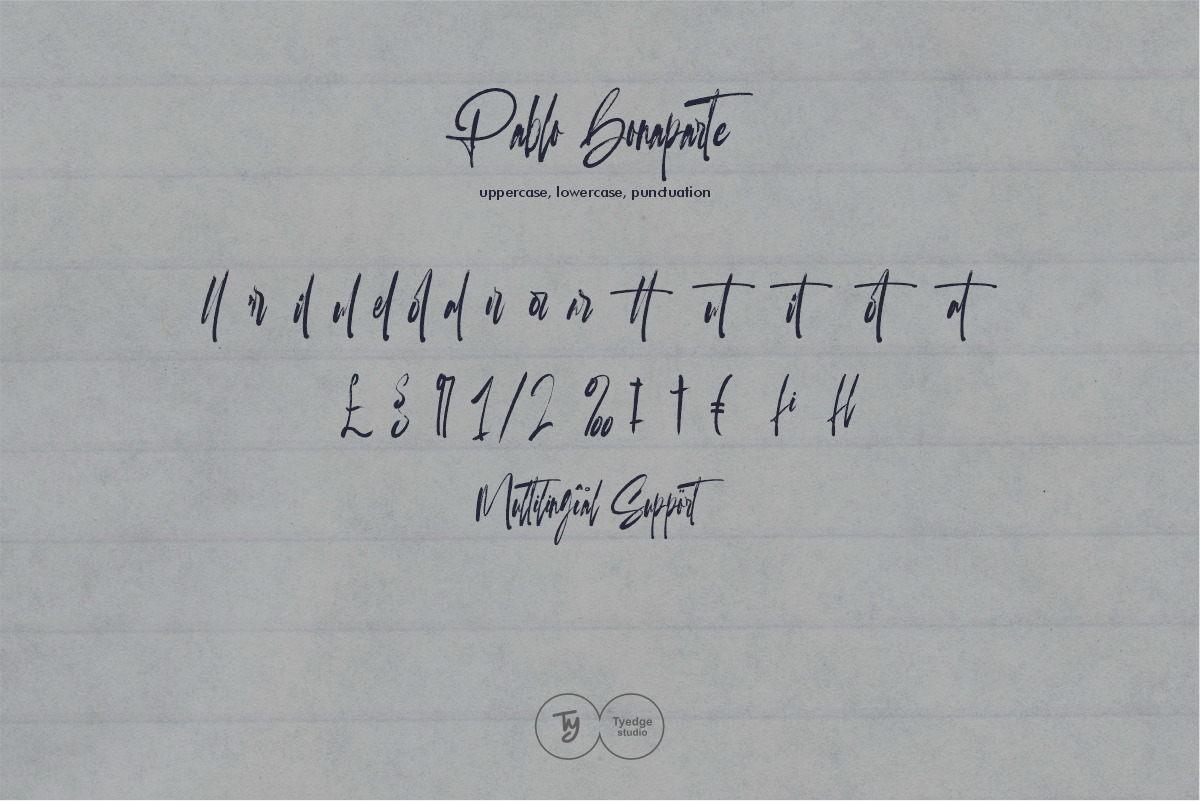 Pablo Bonaparte
uppercase, lowercase, punctuation
ll rr il ul el ol al ir or ar tt ut it ot at
£ § ¶ 1/2 ‰ ‡ † € fi fl
Multilingîål Suppört
Ty Tyedge
studio